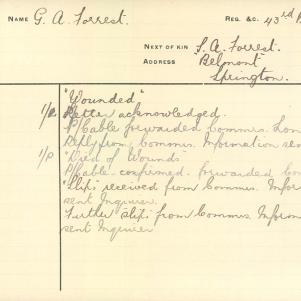 NAME G. A. Forrest.
REG. &C. 43rd B
NEXT OF KIN S. A. Forrest.
ADDRESS "Belmont"
Springton.
"Wounded"
Letter acknowledged.
P/Cable forwarded Commrs. Lon
Reply from Commrs. Information sen
"Died of Wounds"
P/Cable confirmed. forwarded Co
"Slips" received from Commrs. Inform
sent Inquirer.
Further "slips" from Commrs Inform
sent Inquirer